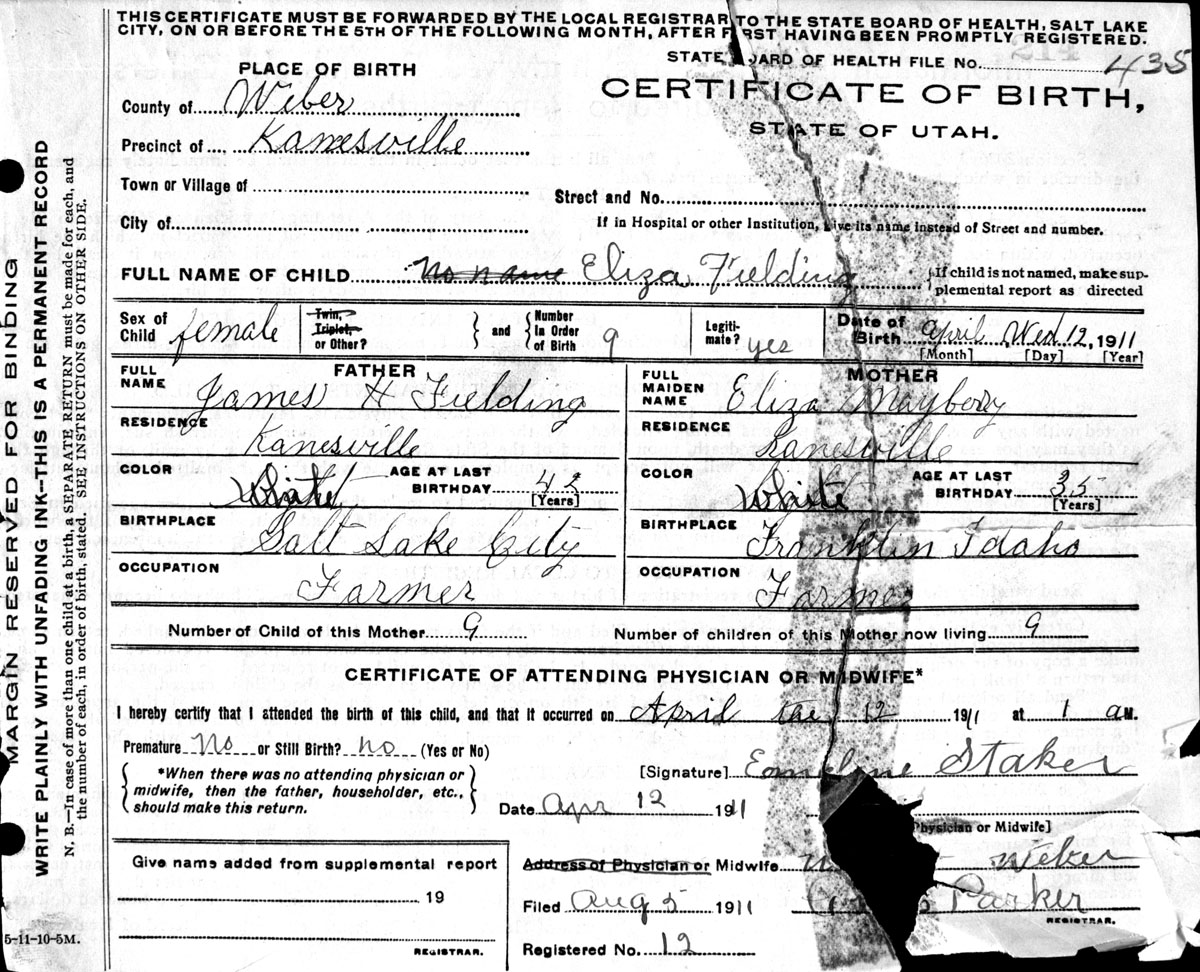 THIS CERTIFICATE MUST BE FORWARDED BY THE LOCAL REGISTRAR TO THE STATE BOARD OF HEALTH, SALT LAKE
CITY, ON OR BEFORE THE 5TH OF THE FOLLOWING MONTH, AFTER FIRST HAVING BEEN PROMPTLY REGISTERED.
STATE BOARD OF HEALTH FILE No. 435
CERTIFICATE OF BIRTH,
STATE OF UTAH.
PLACE OF BIRTH
County of Weber
Precinct of Kanesville
Town or Village of
Street and No.
City of
If in Hospital or other Institution, give its name instead of Street and number.
FULL NAME OF CHILD No name Eliza Fielding
If child is not named, make sup-
plemental report as directed
Sex of Child female
Twin, Triplet, or Other?
and Number In Order of Birth 9
Legiti-mate? yes
Date of Birth April Wed 12, 1911
[Month] [Day] [Year]
FATHER
FULL NAME James H Fielding
RESIDENCE Kanesville
COLOR White AGE AT LAST BIRTHDAY 42 [Years]
BIRTHPLACE Salt Lake City
OCCUPATION Farmer
MOTHER
FULL MAIDEN NAME Eliza Mayberry
RESIDENCE Kanesville
COLOR White AGE AT LAST BIRTHDAY 35 [Years]
BIRTHPLACE Franklin Idaho
OCCUPATION Farmer
Number of Child of this Mother 9 Number of children of this Mother now living 9
CERTIFICATE OF ATTENDING PHYSICIAN OR MIDWIFE*
I hereby certify that I attended the birth of this child, and that it occurred on April the 12 1911 at 1 a M.
Premature No or Still Birth? no (Yes or No)
*When there was no attending physician or
midwife, then the father, householder, etc.,
should make this return.
[Signature] Emeline Staker
Date Apr 12 1911
Physician or Midwife]
Give name added from supplemental report
19
REGISTRAR.
Address of Physician or Midwife Weber
Filed Aug 5 1911 Parker
REGISTRAR.
Registered No. 12
5-11-10-5M.
MARGIN RESERVED FOR BINDING
WRITE PLAINLY WITH UNFADING INK—THIS IS A PERMANENT RECORD
N. B.—In case of more than one child at a birth, a SEPARATE RETURN must be made for each, and
the number of each, in order of birth, stated. SEE INSTRUCTIONS ON OTHER SIDE.